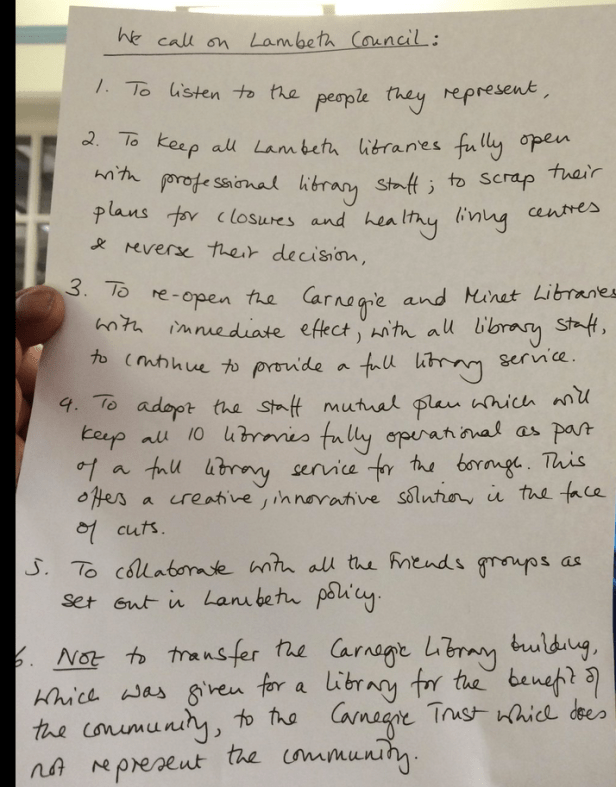 We call on Lambeth Council:
1. To listen to the people they represent,
2. To keep all Lambeth libraries fully open
with professional library staff; to scrap their
plans for closures and healthy living centres
& reverse their decision,
3. To re-open the Carnegie and Minet Libraries
with immediate effect, with all library staff,
to continue to provide a full library service.
4. To adopt the staff mutual plan which will
keep all 10 libraries fully operational as part
of a full library service for the borough. This
offers a creative, innovative solution in the face
of cuts.
5. To collaborate with all the Friends groups as
set out in Lambeth policy.
6. NOT to transfer the Carnegie Library building,
which was given for a library for the benefit of
the community, to the Carnegie Trust which does
not represent the community.